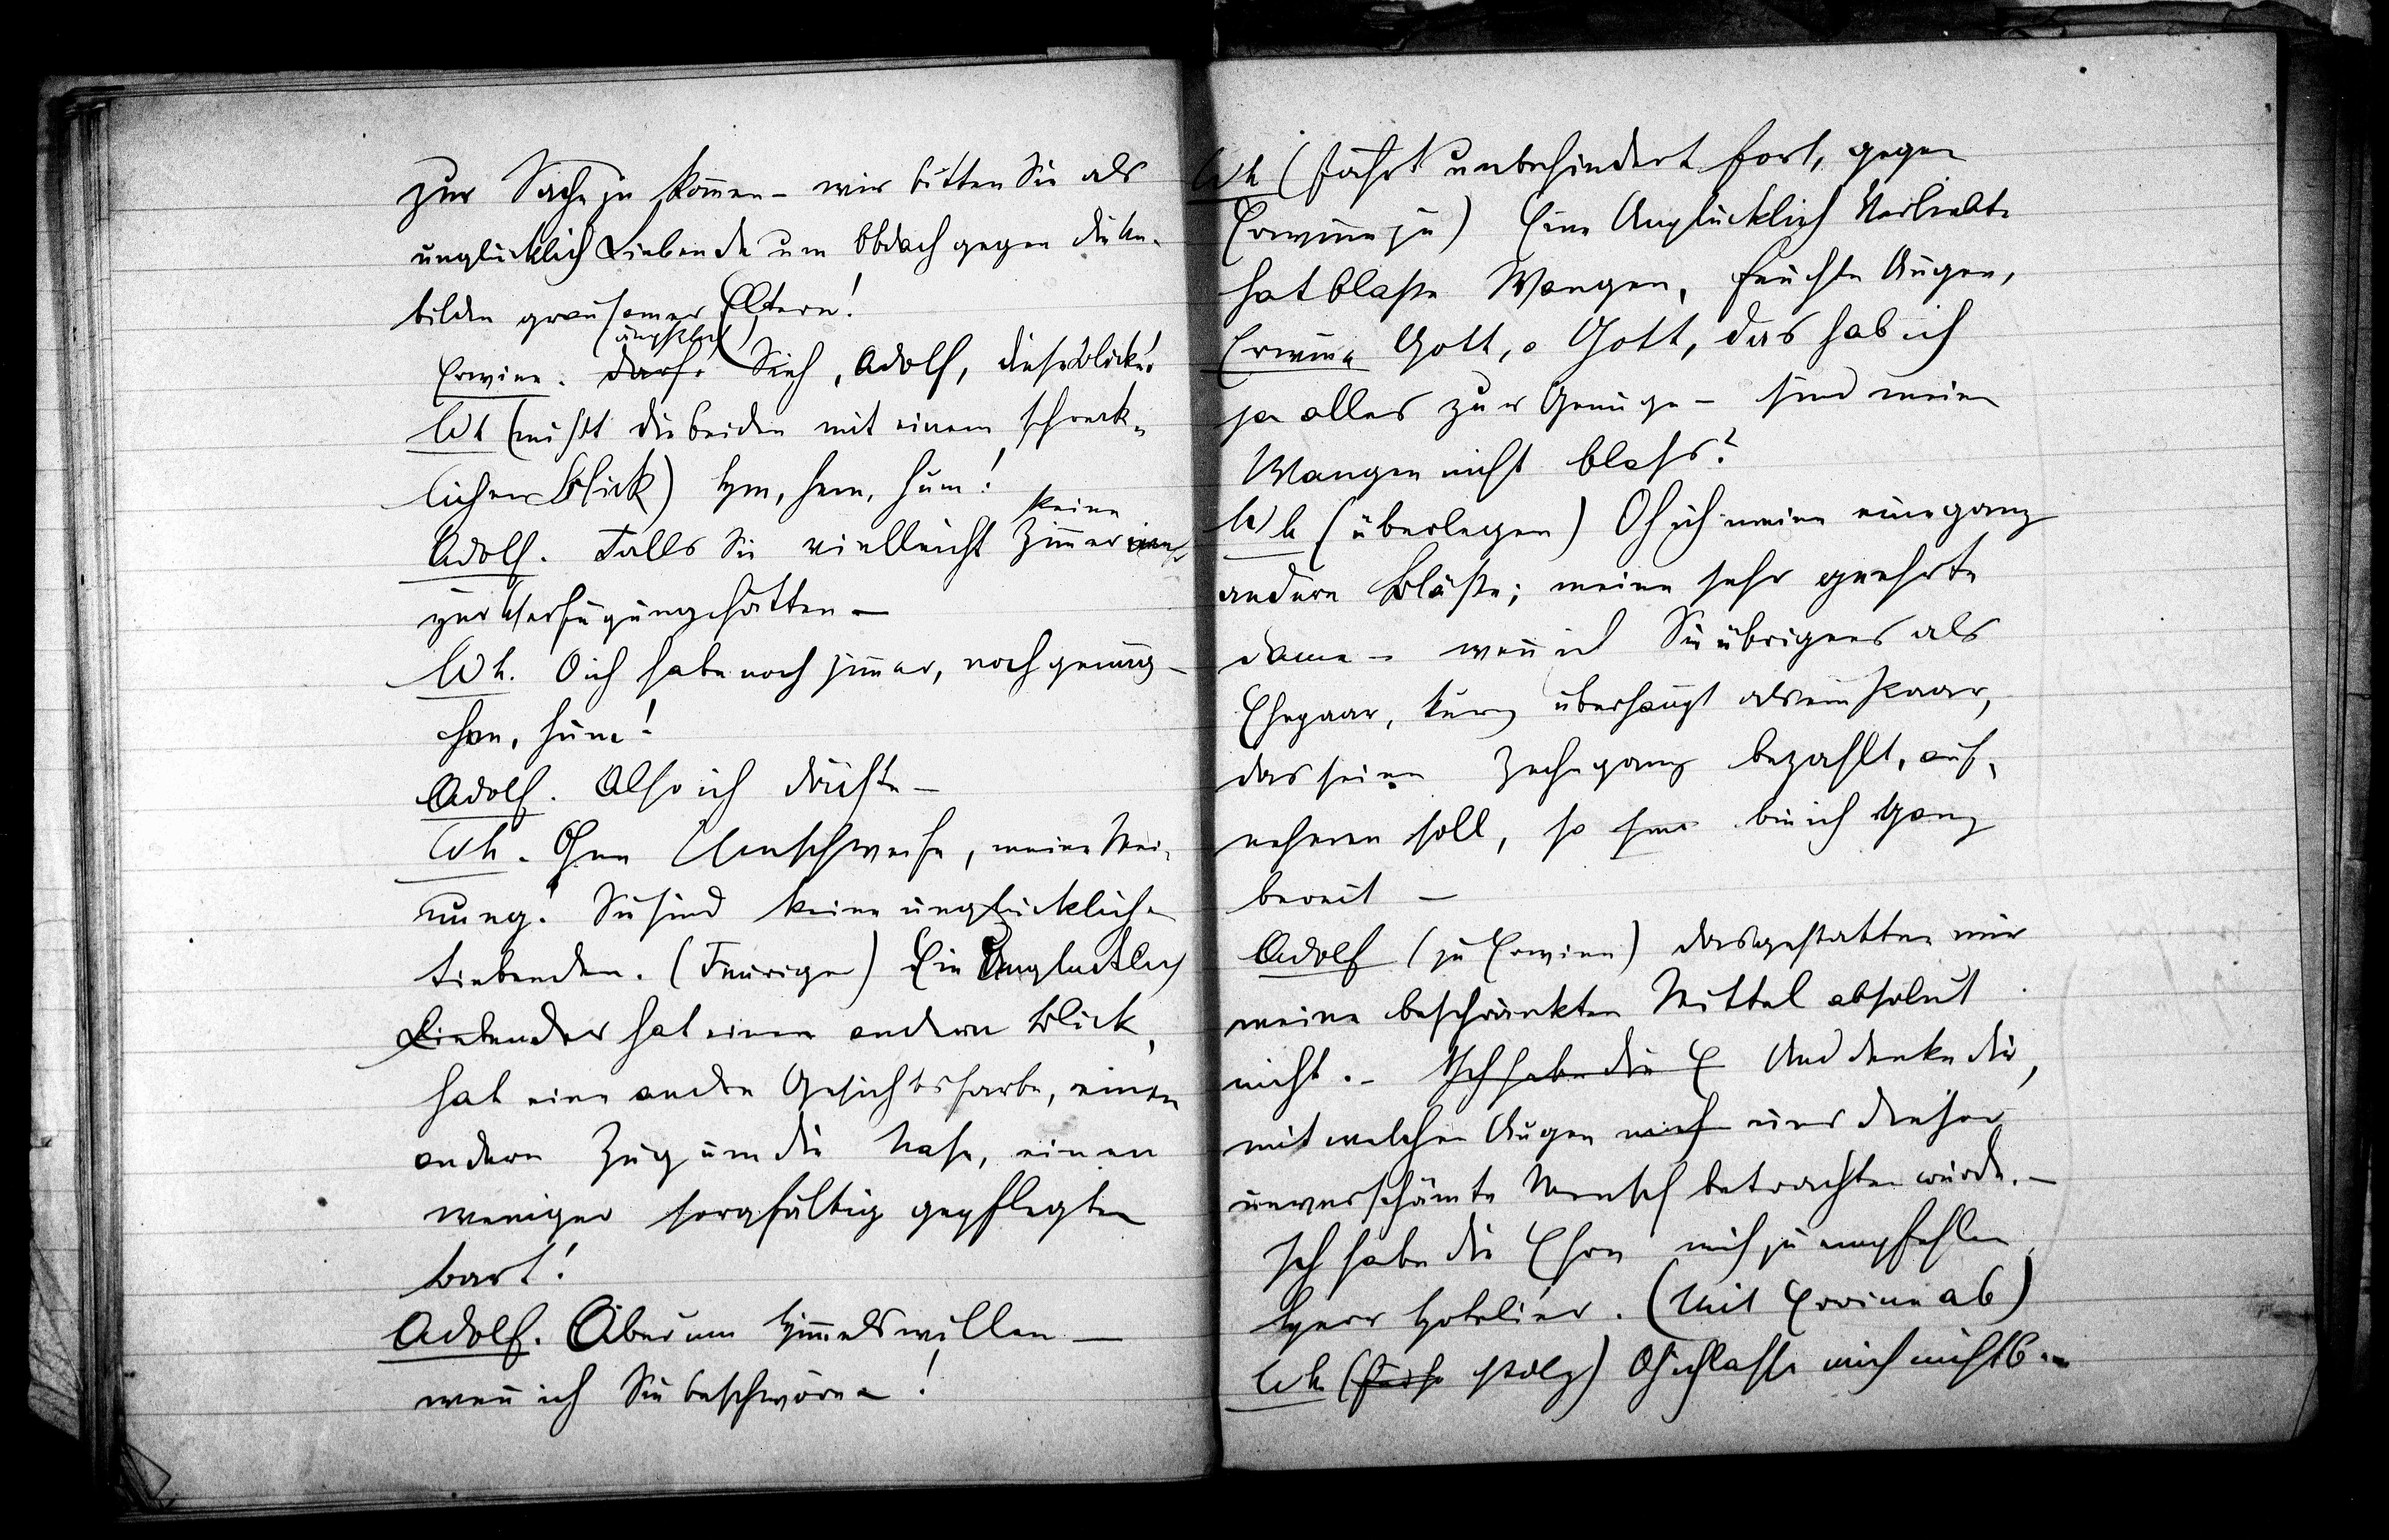 zur Sache zu kom̄en – wir bitten Sie als
unglücklich Liebende um Obdach gegen die Un-
bilden grausamer Eltern!
(ängstlich)
Erwine. darf. Sieh, Adolf, diese Blicke!
Wh (mißt die beiden mit einem schreck-
lichen Blick) Hm, hem, hum!
keine
Adolf. Falls Sie vielleicht Zim̄er mehr
zur Verfügung hätten –
Wh. O ich habe noch zim̄er, noch genug –
hem, hum!
Adolf. Also ich dächte –
Wh. Ohne Umschweife, meine Mei-
nung! Sie sind keine unglücklichen
Liebenden. (Feuriger) Ein Unglücklich
Liebender hat einen andern Blick,
hat eine andre Gesichtsfarbe, einen
andern Zug um die Nase, einen
weniger sorgfältig gepflegten
Bart!
Adolf. Aber um Him̄els willen –
wen̄ ich Sie beschwöre – !
Wh (fährt unbehindert fort, gegen
Erwine zu) Eine Unglücklich Verliebte
hat blaße Wangen, feuchte Augen,
Erwine Gott, o Gott, das hab ich
ja alles zur Genüge – sind meine
Wangen nicht blass?
Wh (überlegen) Oh ich meine eine ganz
andere Bläße; meine sehr geehrte
Dame – wen̄ ich Sie übrigens als
Ehepaar, kurz überhaupt als ein Paar,
das seine Zeche ganz bezahlt, auf-
nehmen soll, so bin ich ganz
bereit –
Adolf (zu Erwine) das gestatten mir
meine beschränkten Mittel absolut
nicht. – Ich habe die E Und denke dir,
mit welchen Augen mich uns dieser
unverschämte Mensch betrachten würde. –
Ich habe die Ehre mich zu empfehlen,
Herr Hotelier. (Mit Erwine ab)
Wh (stolz) Oh ich lasse mich nicht